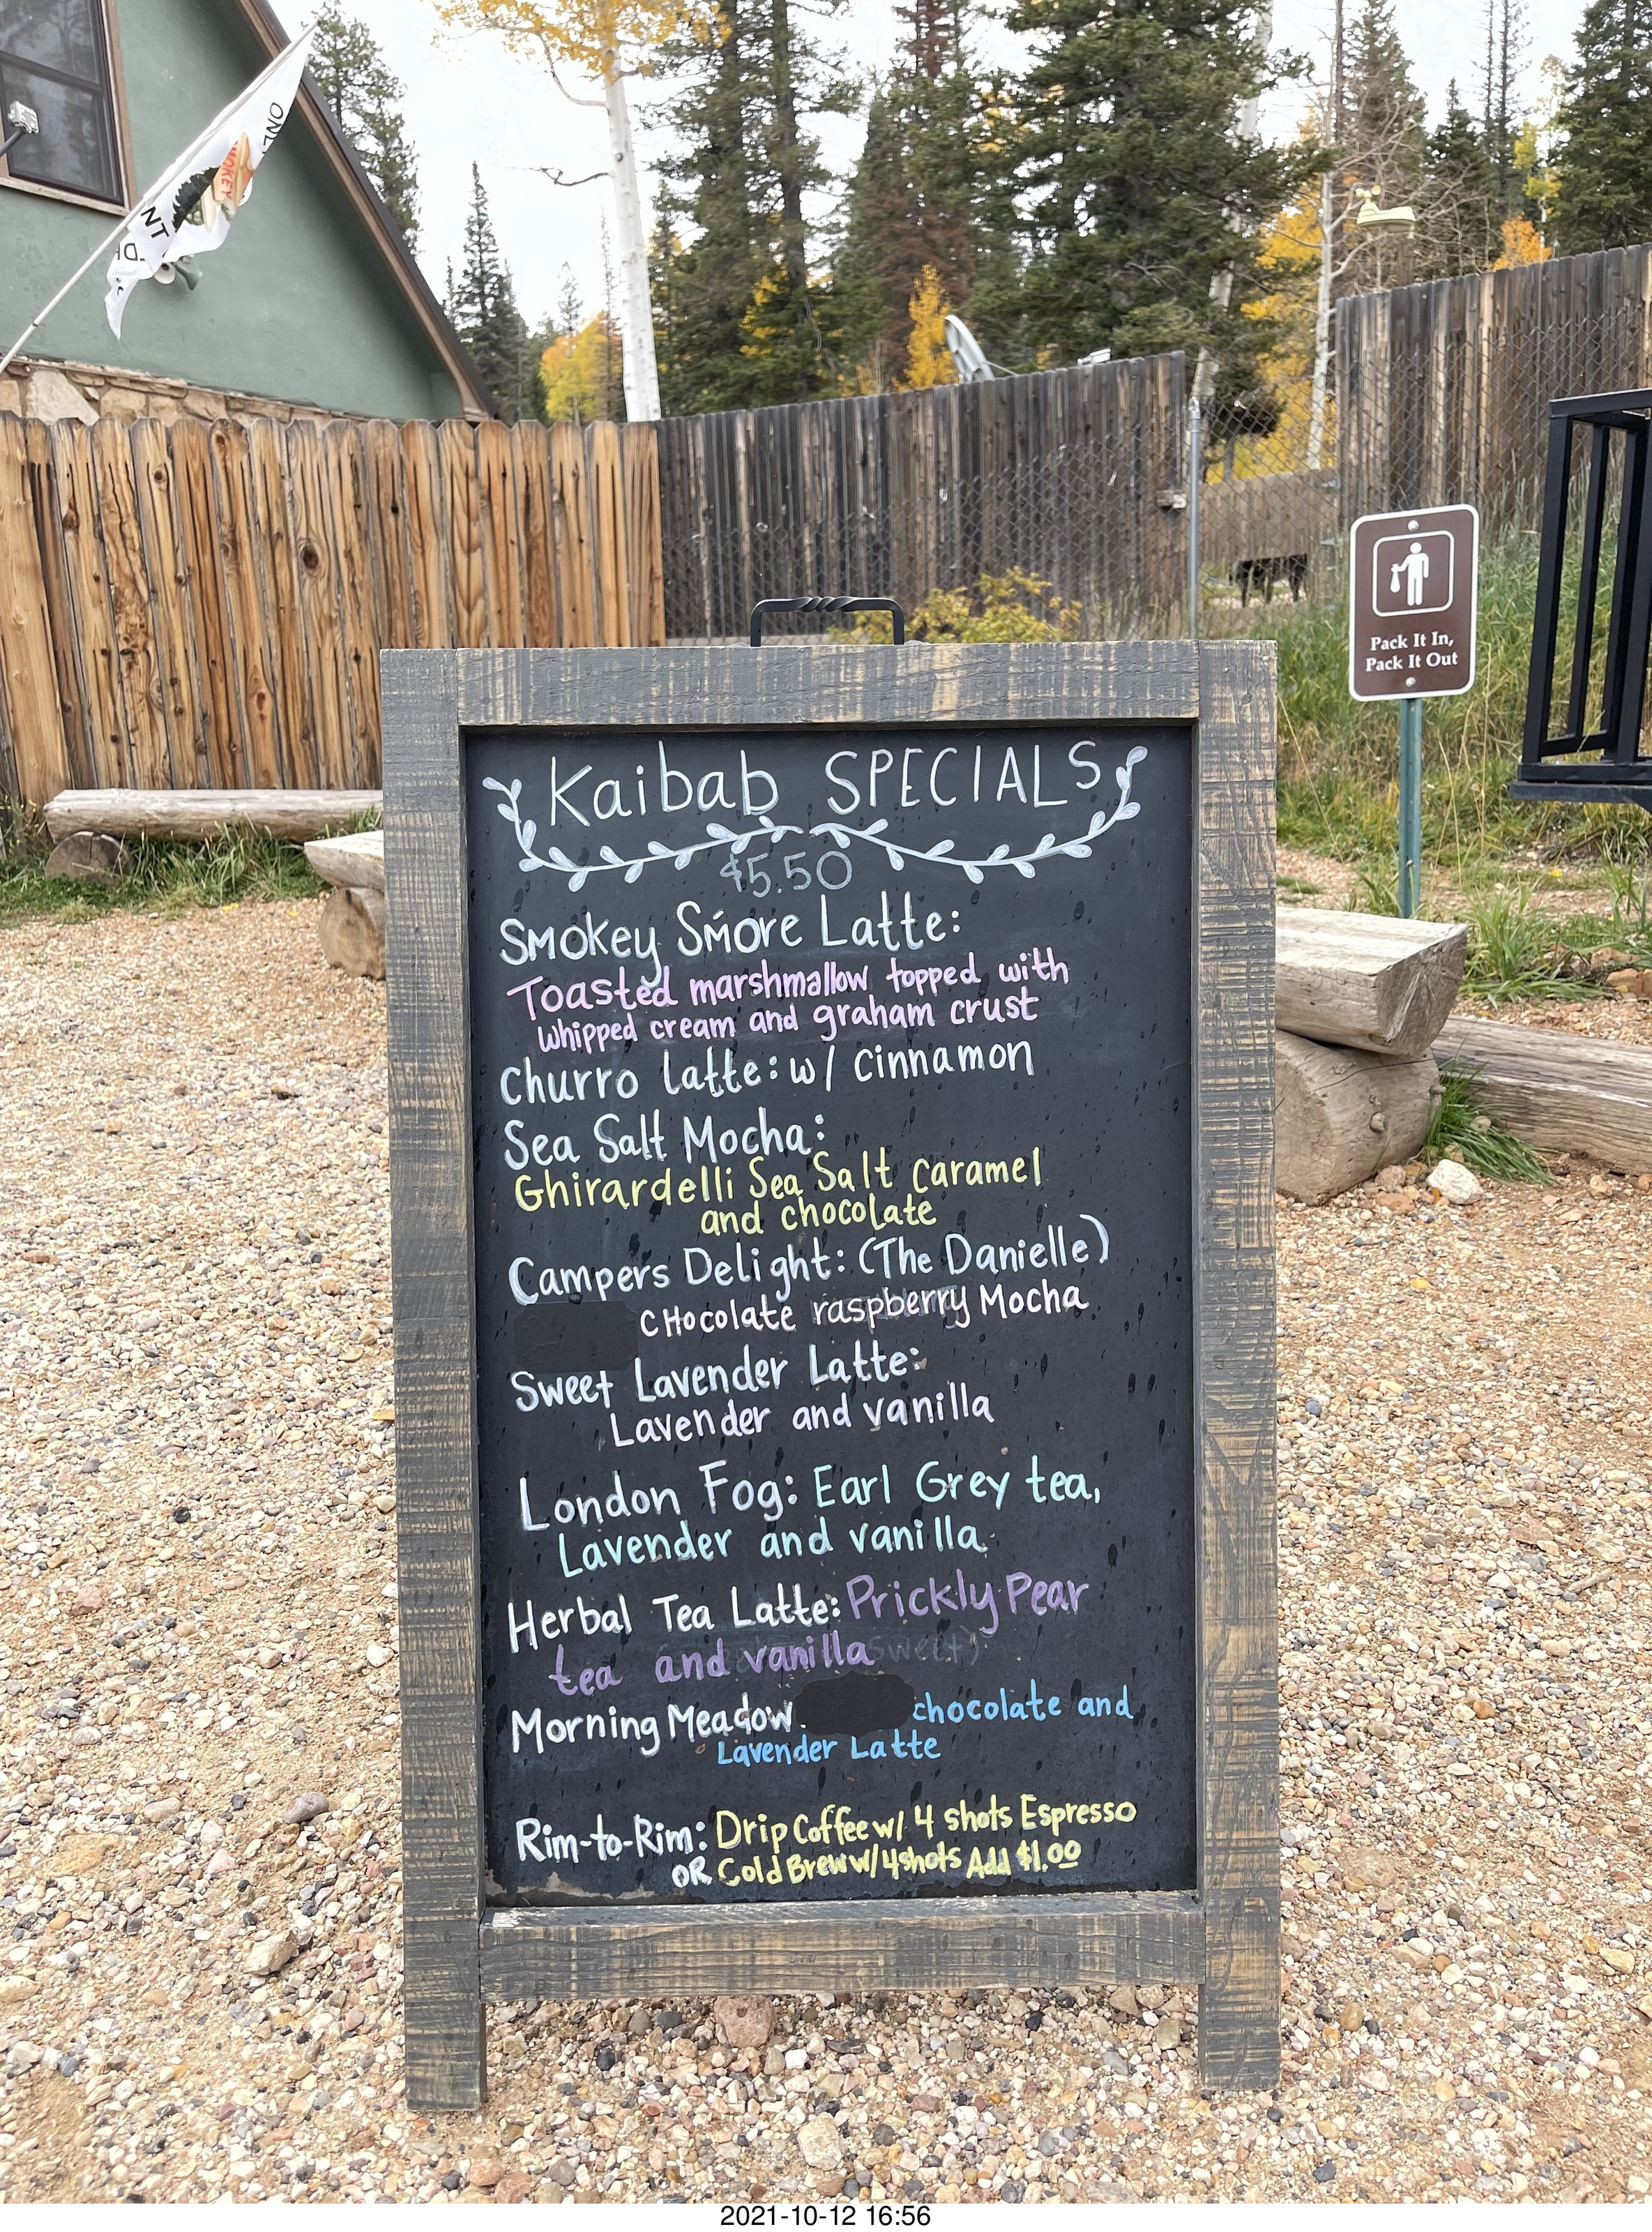 ONL
SMOKEY
NT
Pack It In,
Pack It Out
Kaibab SPECIALS
$5.50
Smokey S'more Latte:
Toasted marshmallow topped with
whipped cream and graham crust
Churro latte: w/ cinnamon
Sea Salt Mocha:
Ghirardelli Sea Salt caramel
and chocolate
Campers Delight: (The Danielle)
CHocolate raspberry Mocha
Sweet Lavender Latte:
Lavender and vanilla
London Fog: Earl Grey tea,
Lavender and vanilla
Herbal Tea Latte: Prickly Pear
tea and vanilla sweet)
Morning Meadow: chocolate and
Lavender Latte
Rim-to-Rim: Drip Coffee w/ 4 shots Espresso
OR Cold Brew w/ 4 shots Add $1.00
2021-10-12 16:56